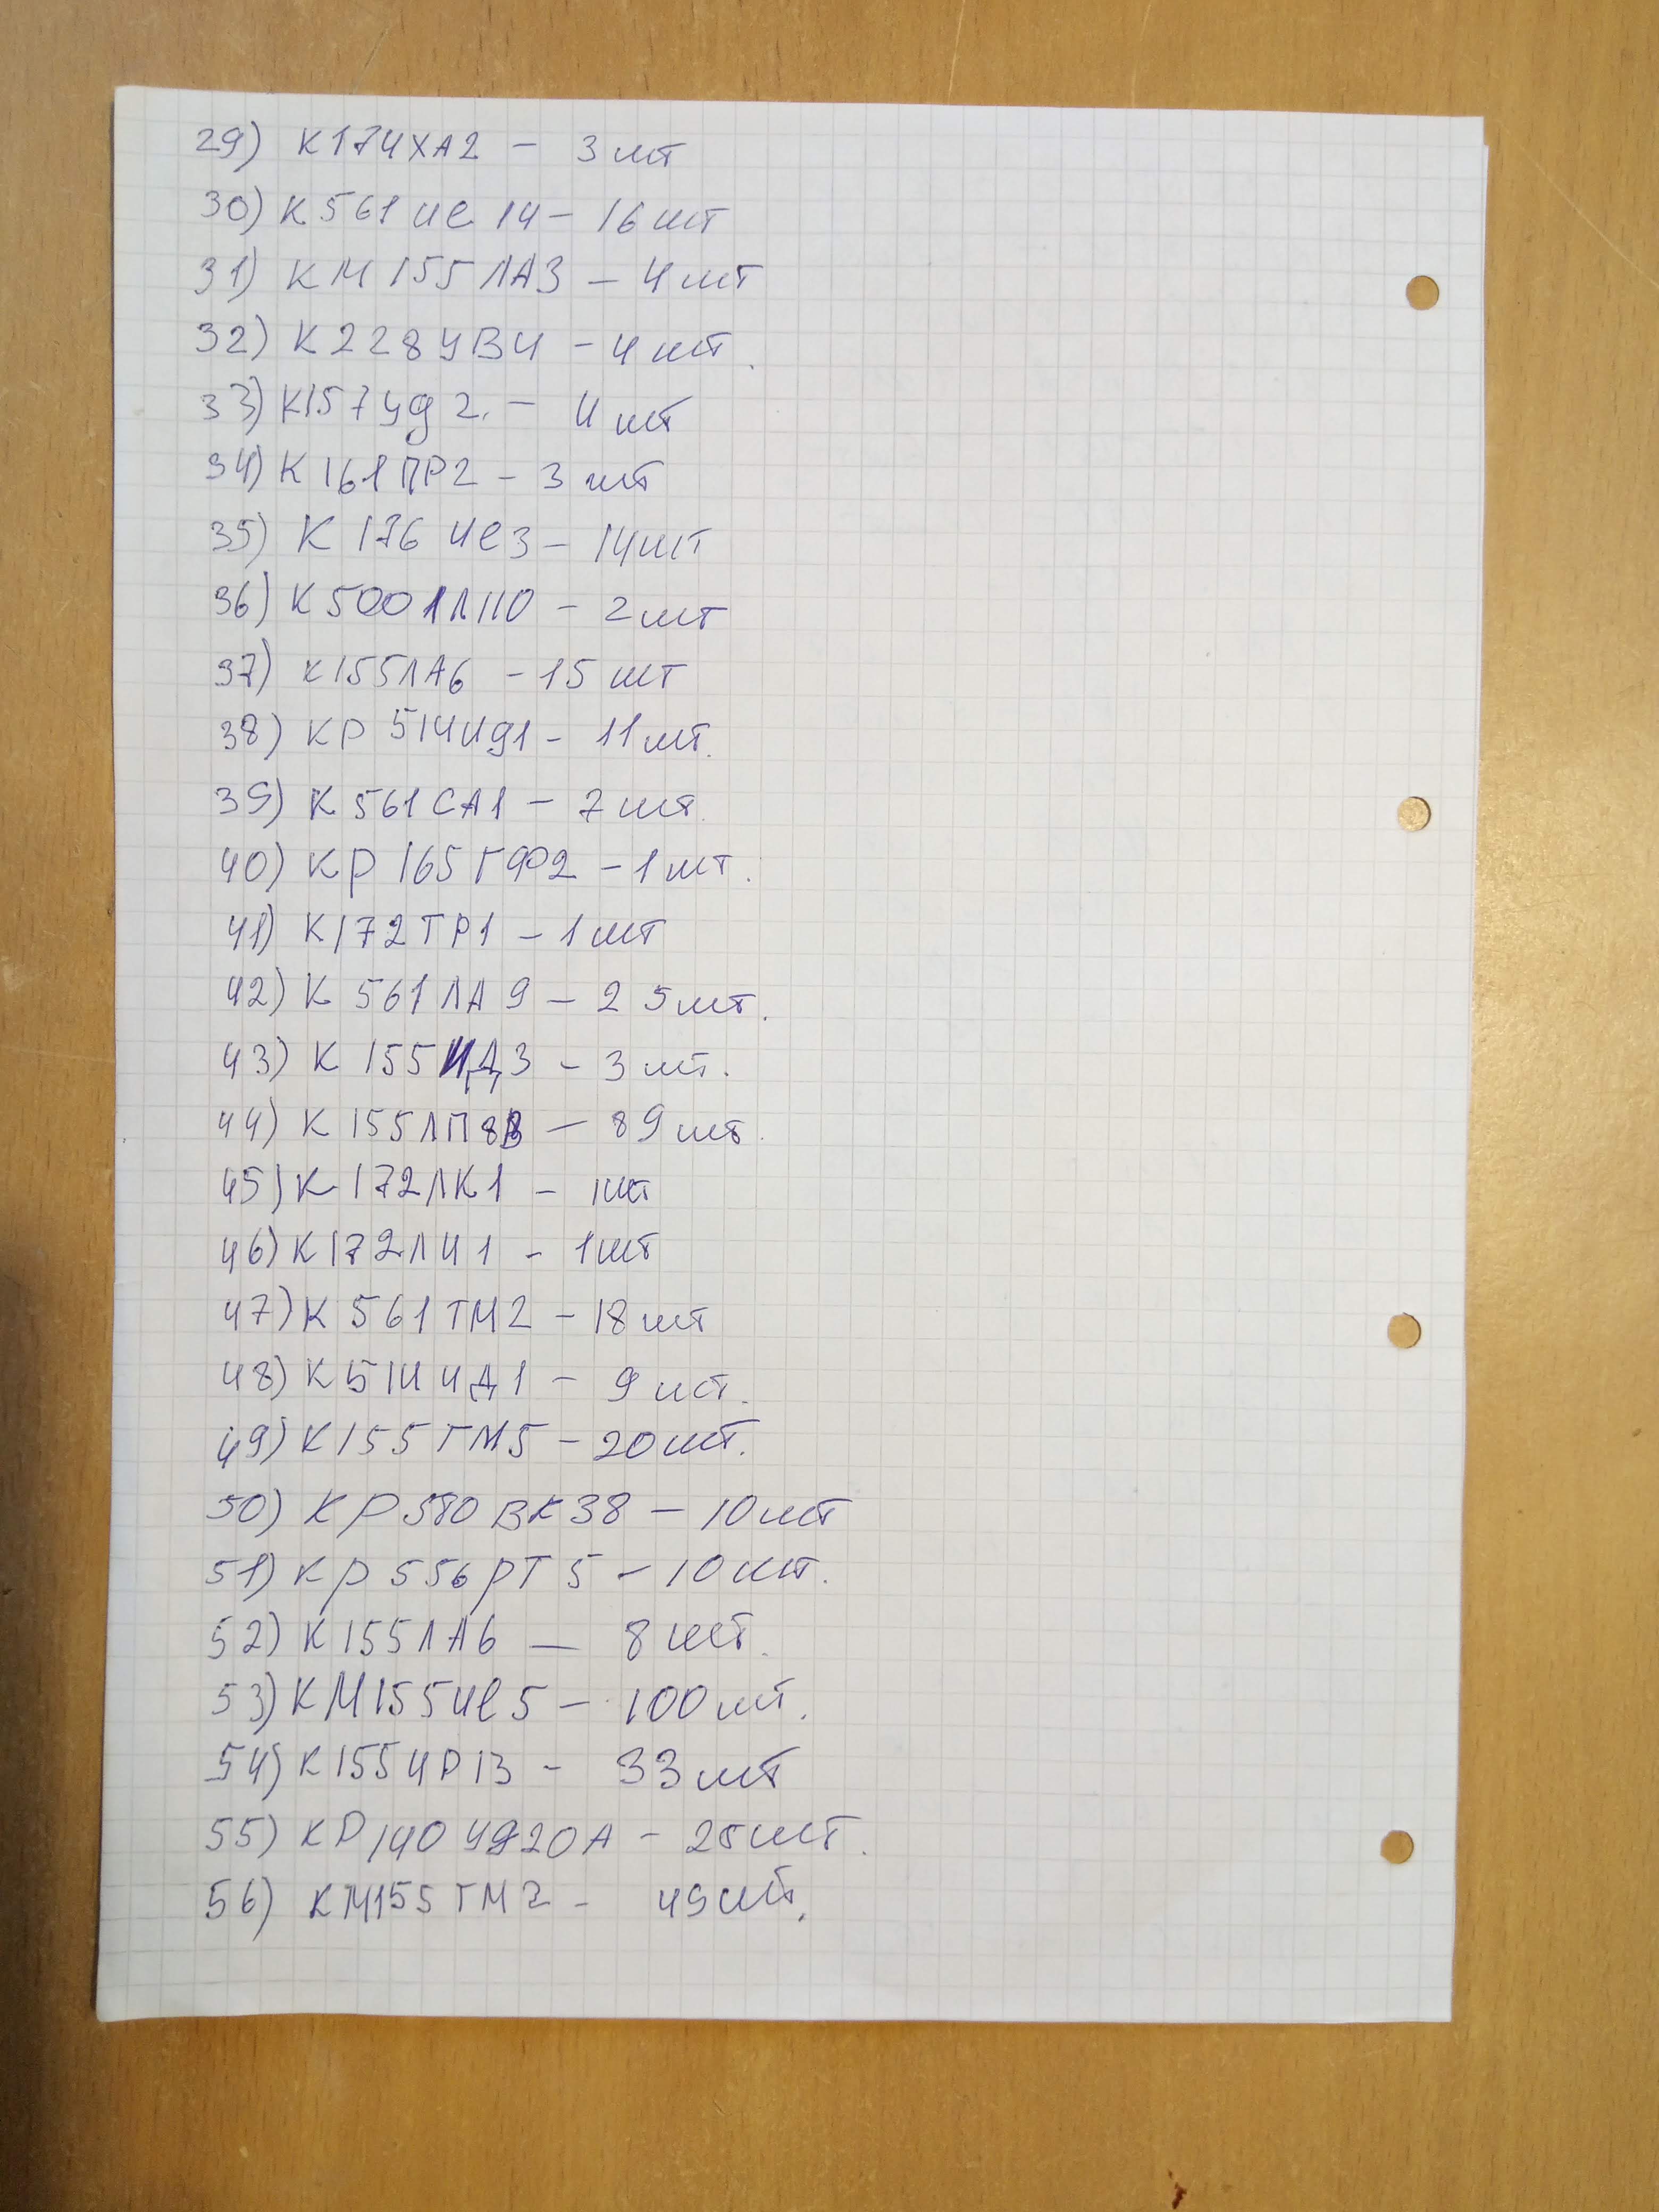 29) К174ХА2 – 3 шт
30) К561ие 14 – 16 шт
31) КМ 155 ЛА3 – 4 шт
32) К228УВ4 – 4 шт.
33) К157уд 2. – 4 шт
34) К 161ПР2 – 3 шт
35) К 176 ие3 – 14шт
36) К500 1Л110 – 2 шт
37) К155ЛА6 – 15 шт
38) КР 514ид1 – 11 шт.
39) К 561СА1 – 7 шт.
40) КР 165ГФ2 – 1 шт.
41) К172ТР1 – 1 шт
42) К 561 ЛА 9 – 25 шт.
43) К 155 ИД3 – 3 шт.
44) К 155ЛП8В – 89 шт.
45) К 172ЛК1 – 1шт
46) К172ЛИ1 – 1шт
47) К 561 ТМ2 – 18 шт
48) К514 ИД1 – 9 шт.
49) К155 ТМ5 – 20 шт.
50) КР580 ВК38 – 10 шт
51) Кр 556рТ 5 – 10 шт.
52) К155ЛА6 – 8 шт.
53) КМ155ие5 – 100 шт.
54) К155ИР13 – 33 шт
55) КР140 уд20А – 25 шт.
56) КМ155 ТМ2 – 49 шт.